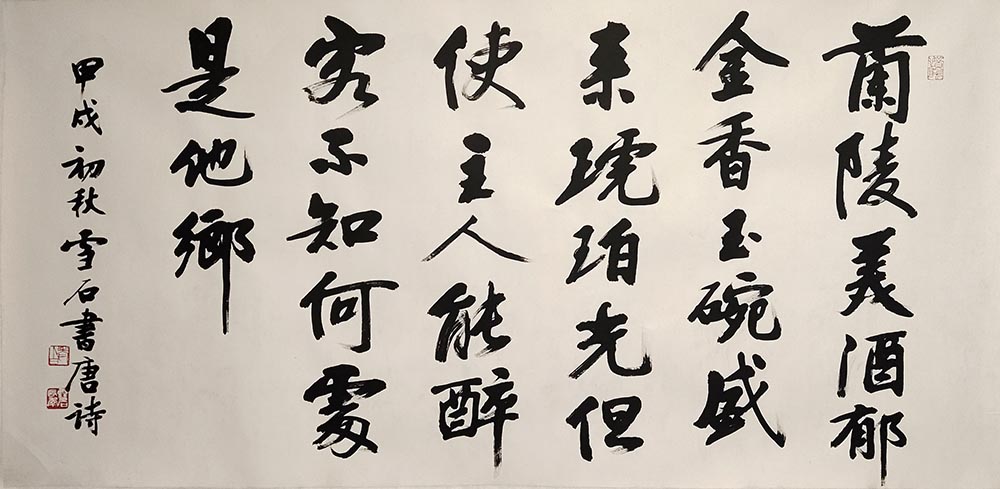 蘭陵美酒郁
金香玉碗盛
来琥珀光但
使主人能醉
客不知何處
是他鄉
甲戌初秋雪石書唐诗